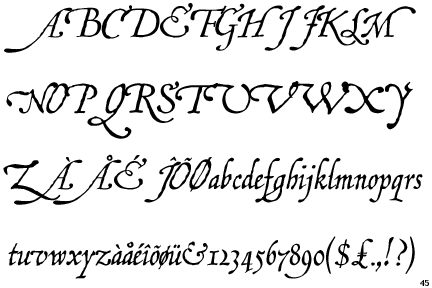 ABCDEFGHIJKLM
NOPQRSTUVWXY
ZÀÅÉÎÕØabcdefghijklmnopqrs
tuvwxyzàåéîõøü&1234567890($£.,!?)
45